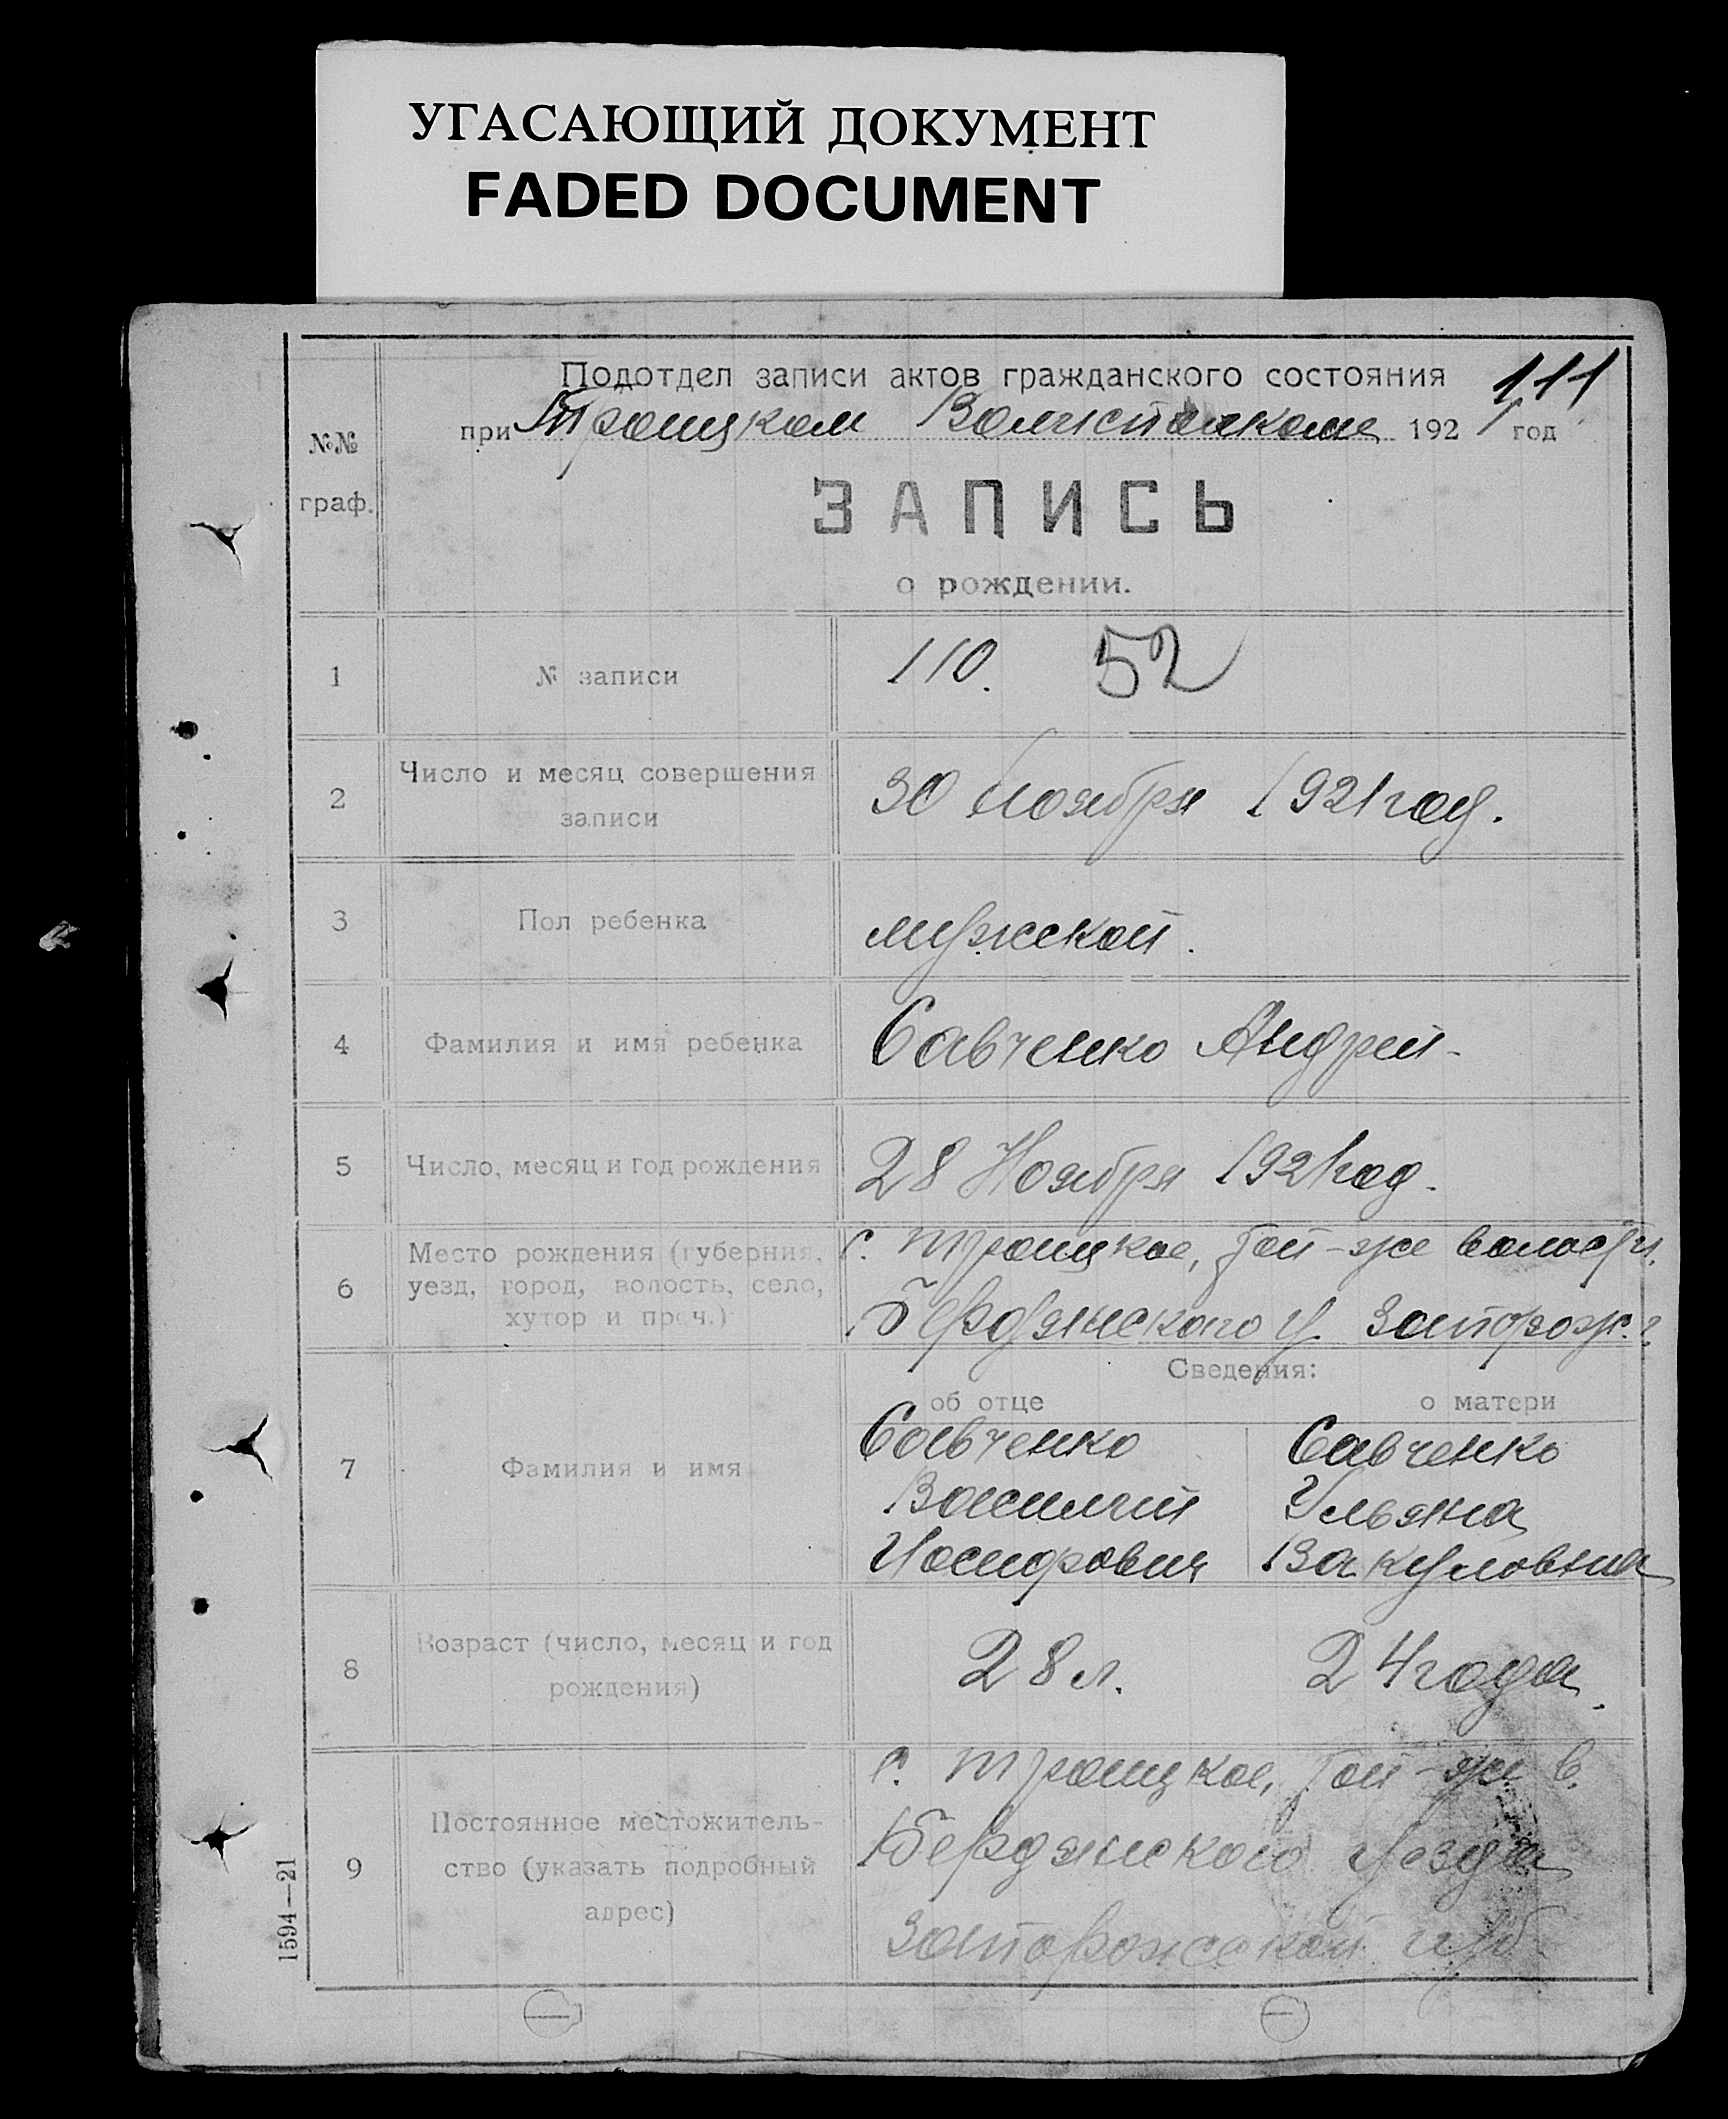 УГАСАЮЩИЙ ДОКУМЕНТ
FADED DOCUMENT
Подотдел записи актов гражданского состояния 111
при Троицком Волисполкоме 1921 год
№№
граф.
ЗАПИСЬ
о рождении.
1 № записи 110. 52
2 Число и месяц совершения записи 30 ноября 1921 год.
3 Пол ребенка мужской.
4 Фамилия и имя ребенка Савченко Андрей
5 Число, месяц и год рождения 28 Ноября 1921 год.
6 Место рождения (губерния, уезд, город, волость, село, хутор и проч.)
с. Троицкое, той-же волости,
Бердянского у. Запорож. г.
Сведения:
об отце о матери
7 Фамилия и имя
Савченко Савченко
Василий Ульяна
Иосифович Вакуловна
8 Возраст (число, месяц и год рождения) 28 л. 24 года.
9 Постоянное местожитель-
ство (указать подробный
адрес)
с. Троицкое, той-же в.
Бердянского уезда
Запорожской губ.
1594—21